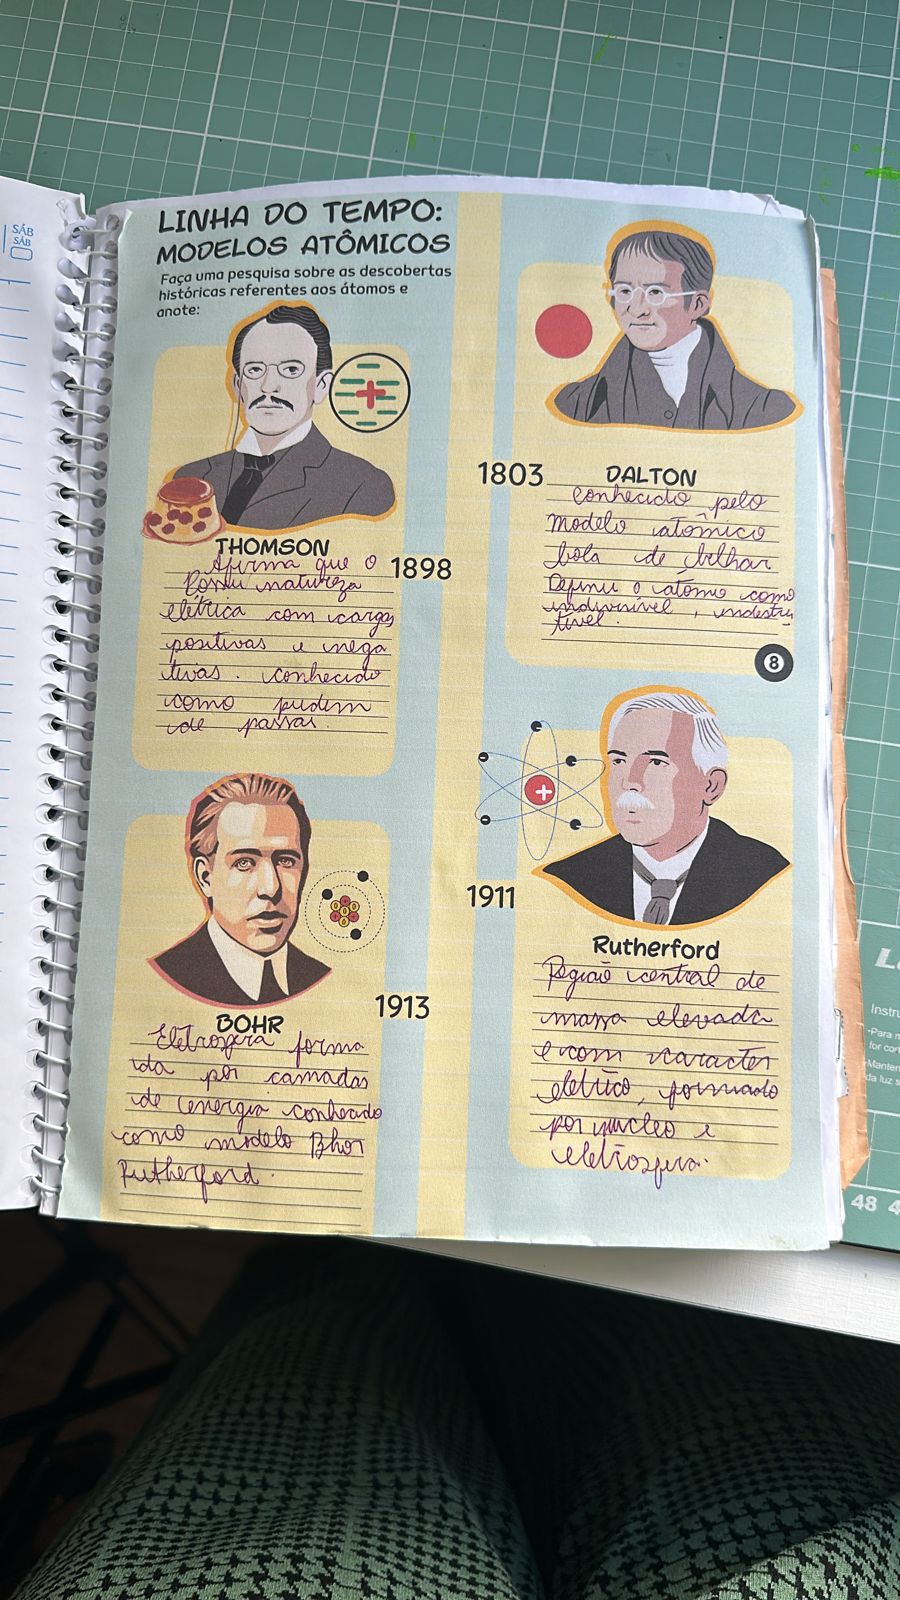 SÁB
SÁB
LINHA DO TEMPO:
MODELOS ATÔMICOS
Faça uma pesquisa sobre as descobertas
históricas referentes aos átomos e
anote:
1803 DALTON
conhecido pelo
modelo atômico
bola de bilhar
Definiu o átomo como
indivisível, indestru
tível.
8
THOMSON
1898
Afirma que o
Possui natureza
elétrica com cargas
positivas e nega
tivas. conhecido
como pudim
de passas.
1911
Rutherford
Região central de
massa elevada
e com caracter
elétrico, formado
por núcleo e
eletrosfera.
1913
BOHR
Eletrosfera forma
da por camadas
de energia conhecido
como modelo Bhor
Rutherford.
Instru
48 4